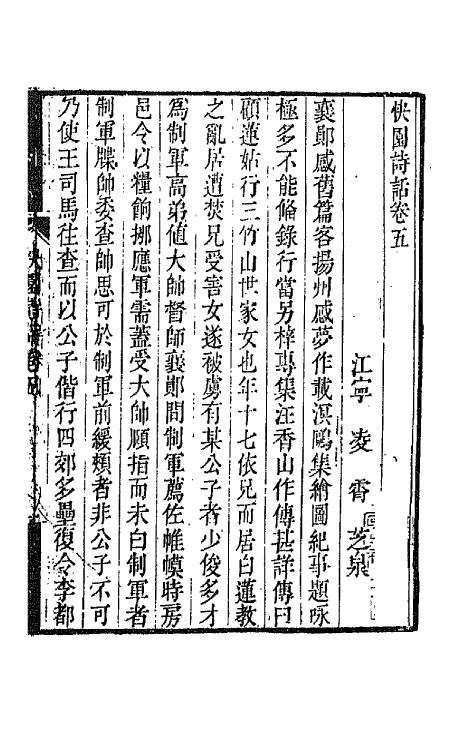 快園詩話卷五
江寧 凌霄 芝泉
襄鄖感舊篇客揚州感夢作載淇鷗集繪圖紀事題咏
極多不能備錄行當另梓專集汪香山作傳甚詳傳曰
顧蓮姑行三竹山世家女也年十七依兄而居白蓮教
之亂居遭焚兄受害女遂被虜有某公子者少俊多才
為制軍高弟值大帥督師襄鄖間制軍薦佐帷幙時房
邑令以糧餉挪應軍需蓋受大帥頤指而未白制軍者
制軍牒帥委查帥思可於制軍前緩頰者非公子不可
乃使王司馬往查而以公子偕行四郊多壘復令李都
快園詩話卷五